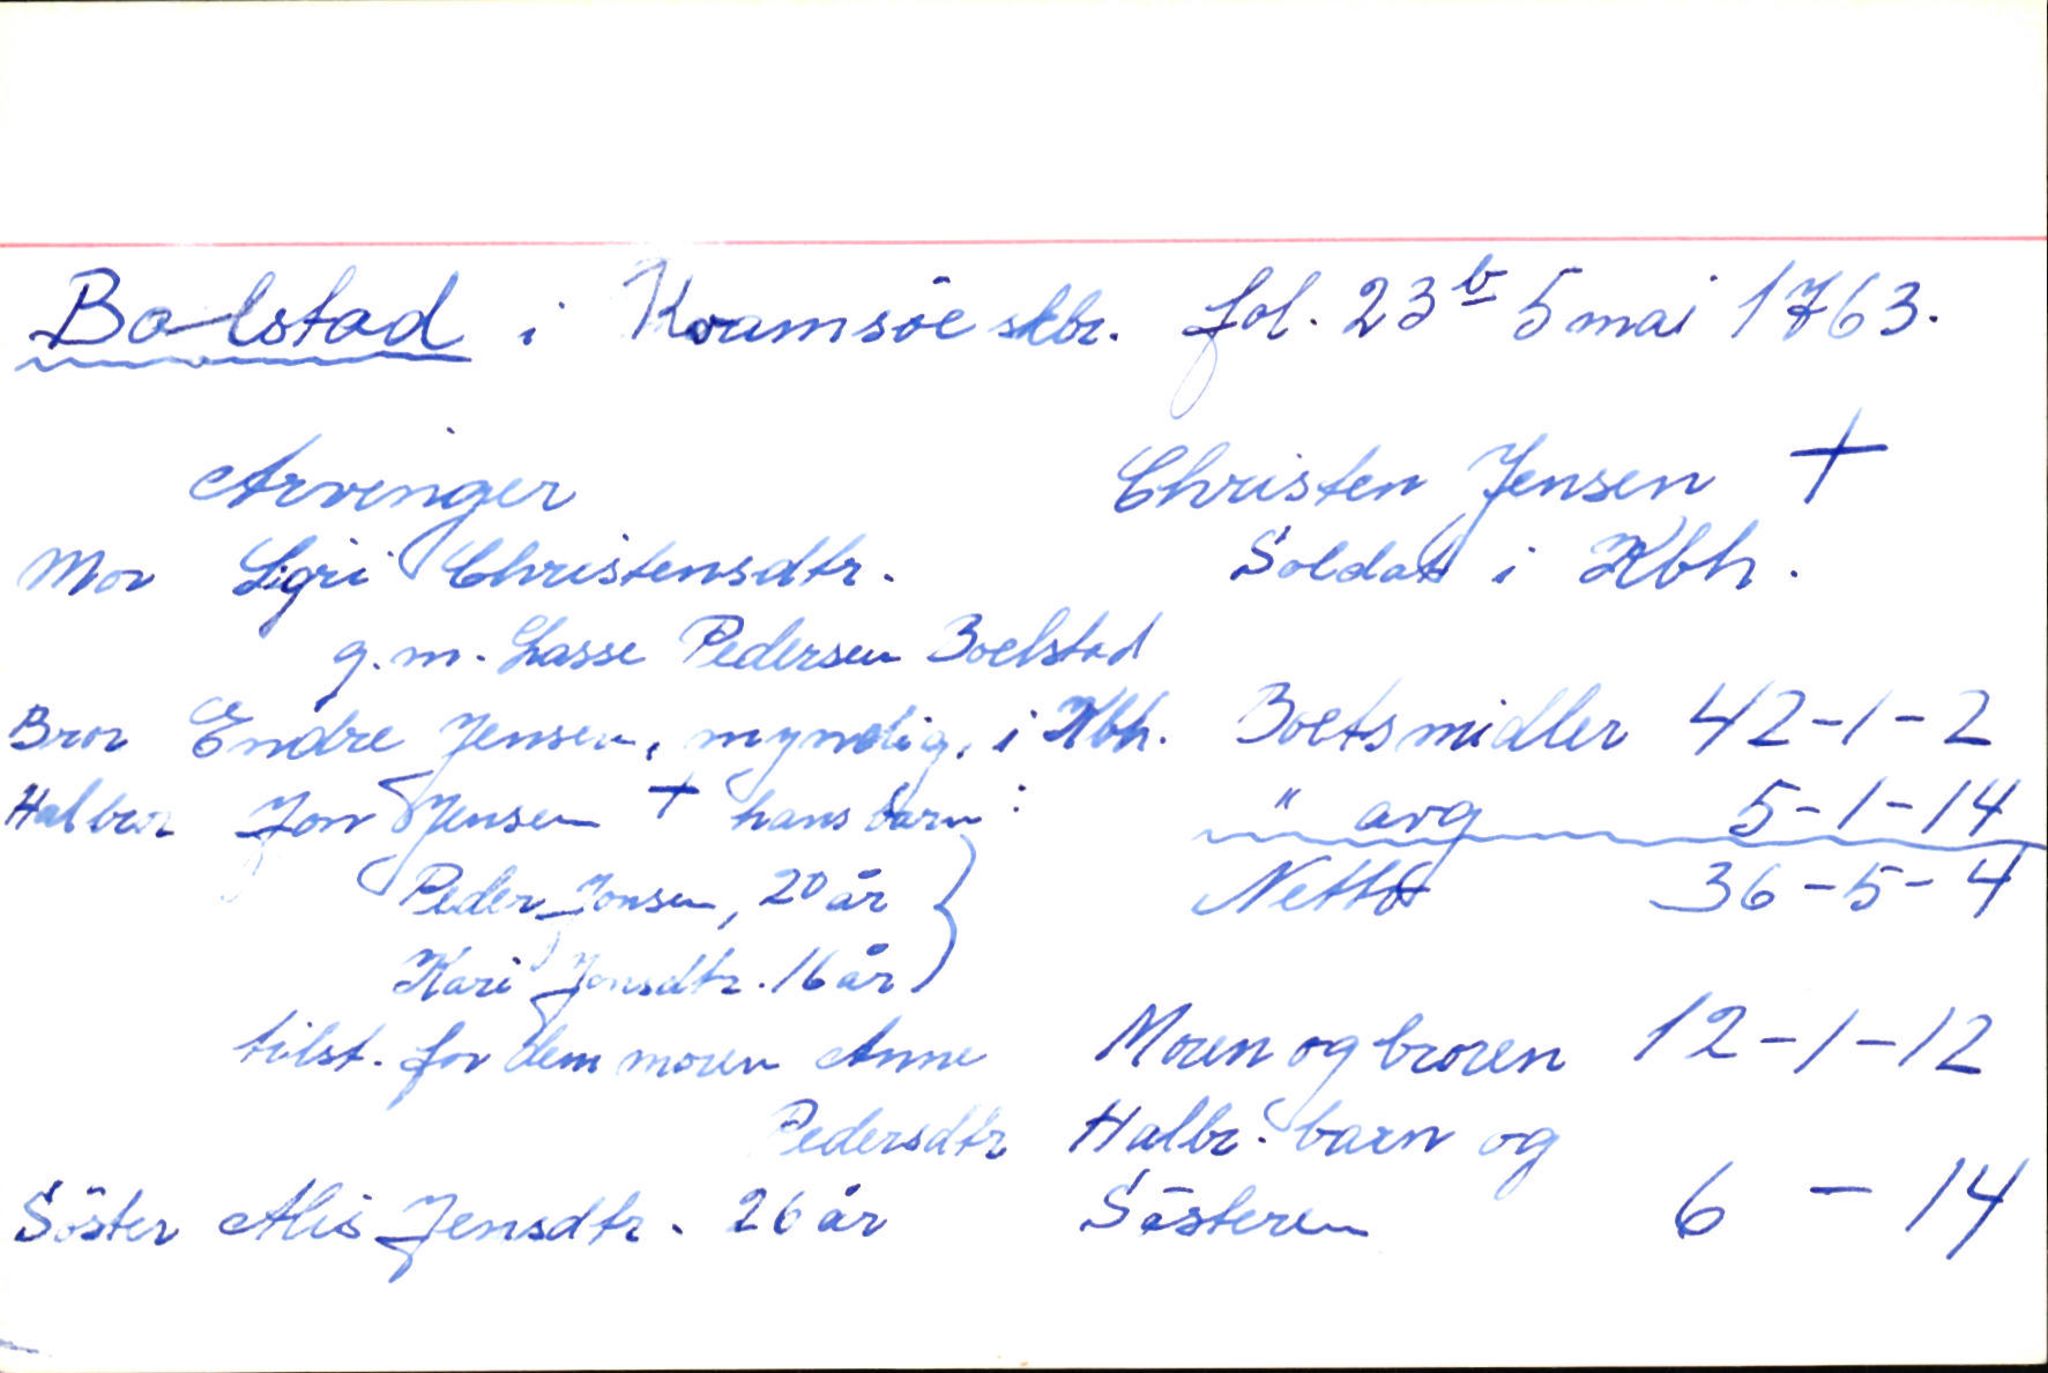 Bolstad i Kvamsöe skbr. fol. 23b 5 mai 1763.
Arvinger Christen Jensen +
Mor Sigri Christensdtr. Soldat i Kbh.
g.m. Lasse Pedersen Boelstad
Bror Endre Jensen, myndig, i Kbh. Boetsmidler 42-1-2
Halbror Jon Jensen + hans barn: " avg 5-1-14
Peder Jonsen, 20 år Netto 36-5-4
Kari Jonsdtr. 16 år
tilst. for dem moren Anne Moren og broren 12-1-12
Pedersdtr Halbr. barn og
Söster Alis Jensdtr. 26 år Søsteren 6 - 14